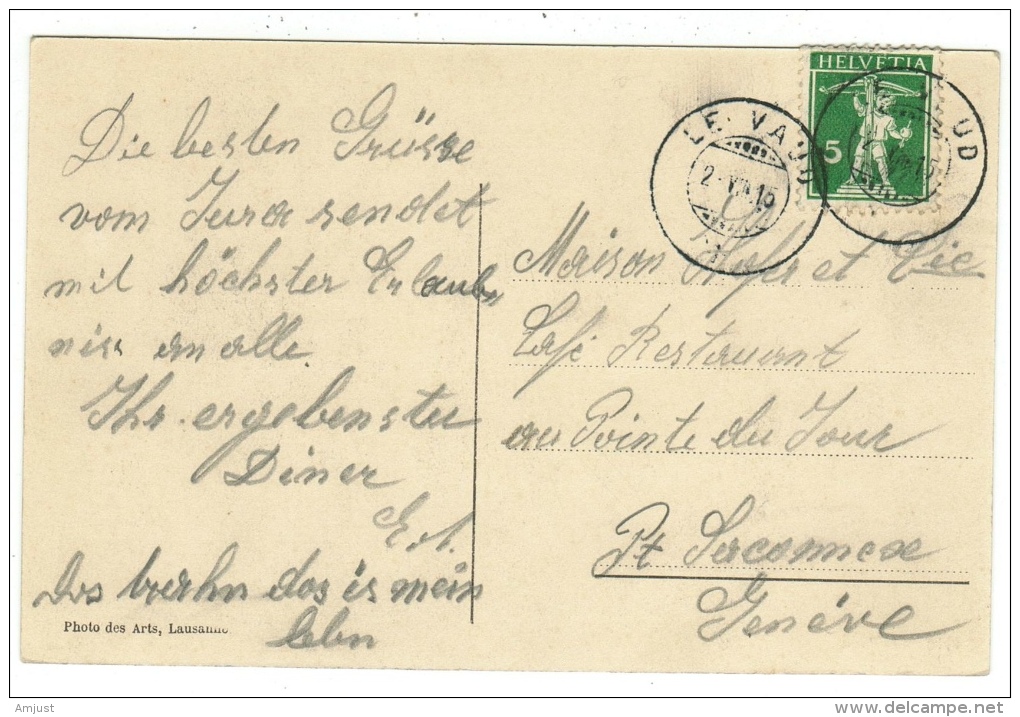 Die besten Grüsse
vom Jura sendet
mit höchster Erlaub
niss an alle
Ihr ergebenster
Diner
Das is mein
lebn
Photo des Arts, Lausanne
HELVETIA
5
LE VAUD
2. VII. 15
UD
VII. 15
Maison et Cie
Café Restaurant
au Pointe du Jour
Pt Saconnexe
Genéve
Amjust
www.delcampe.net